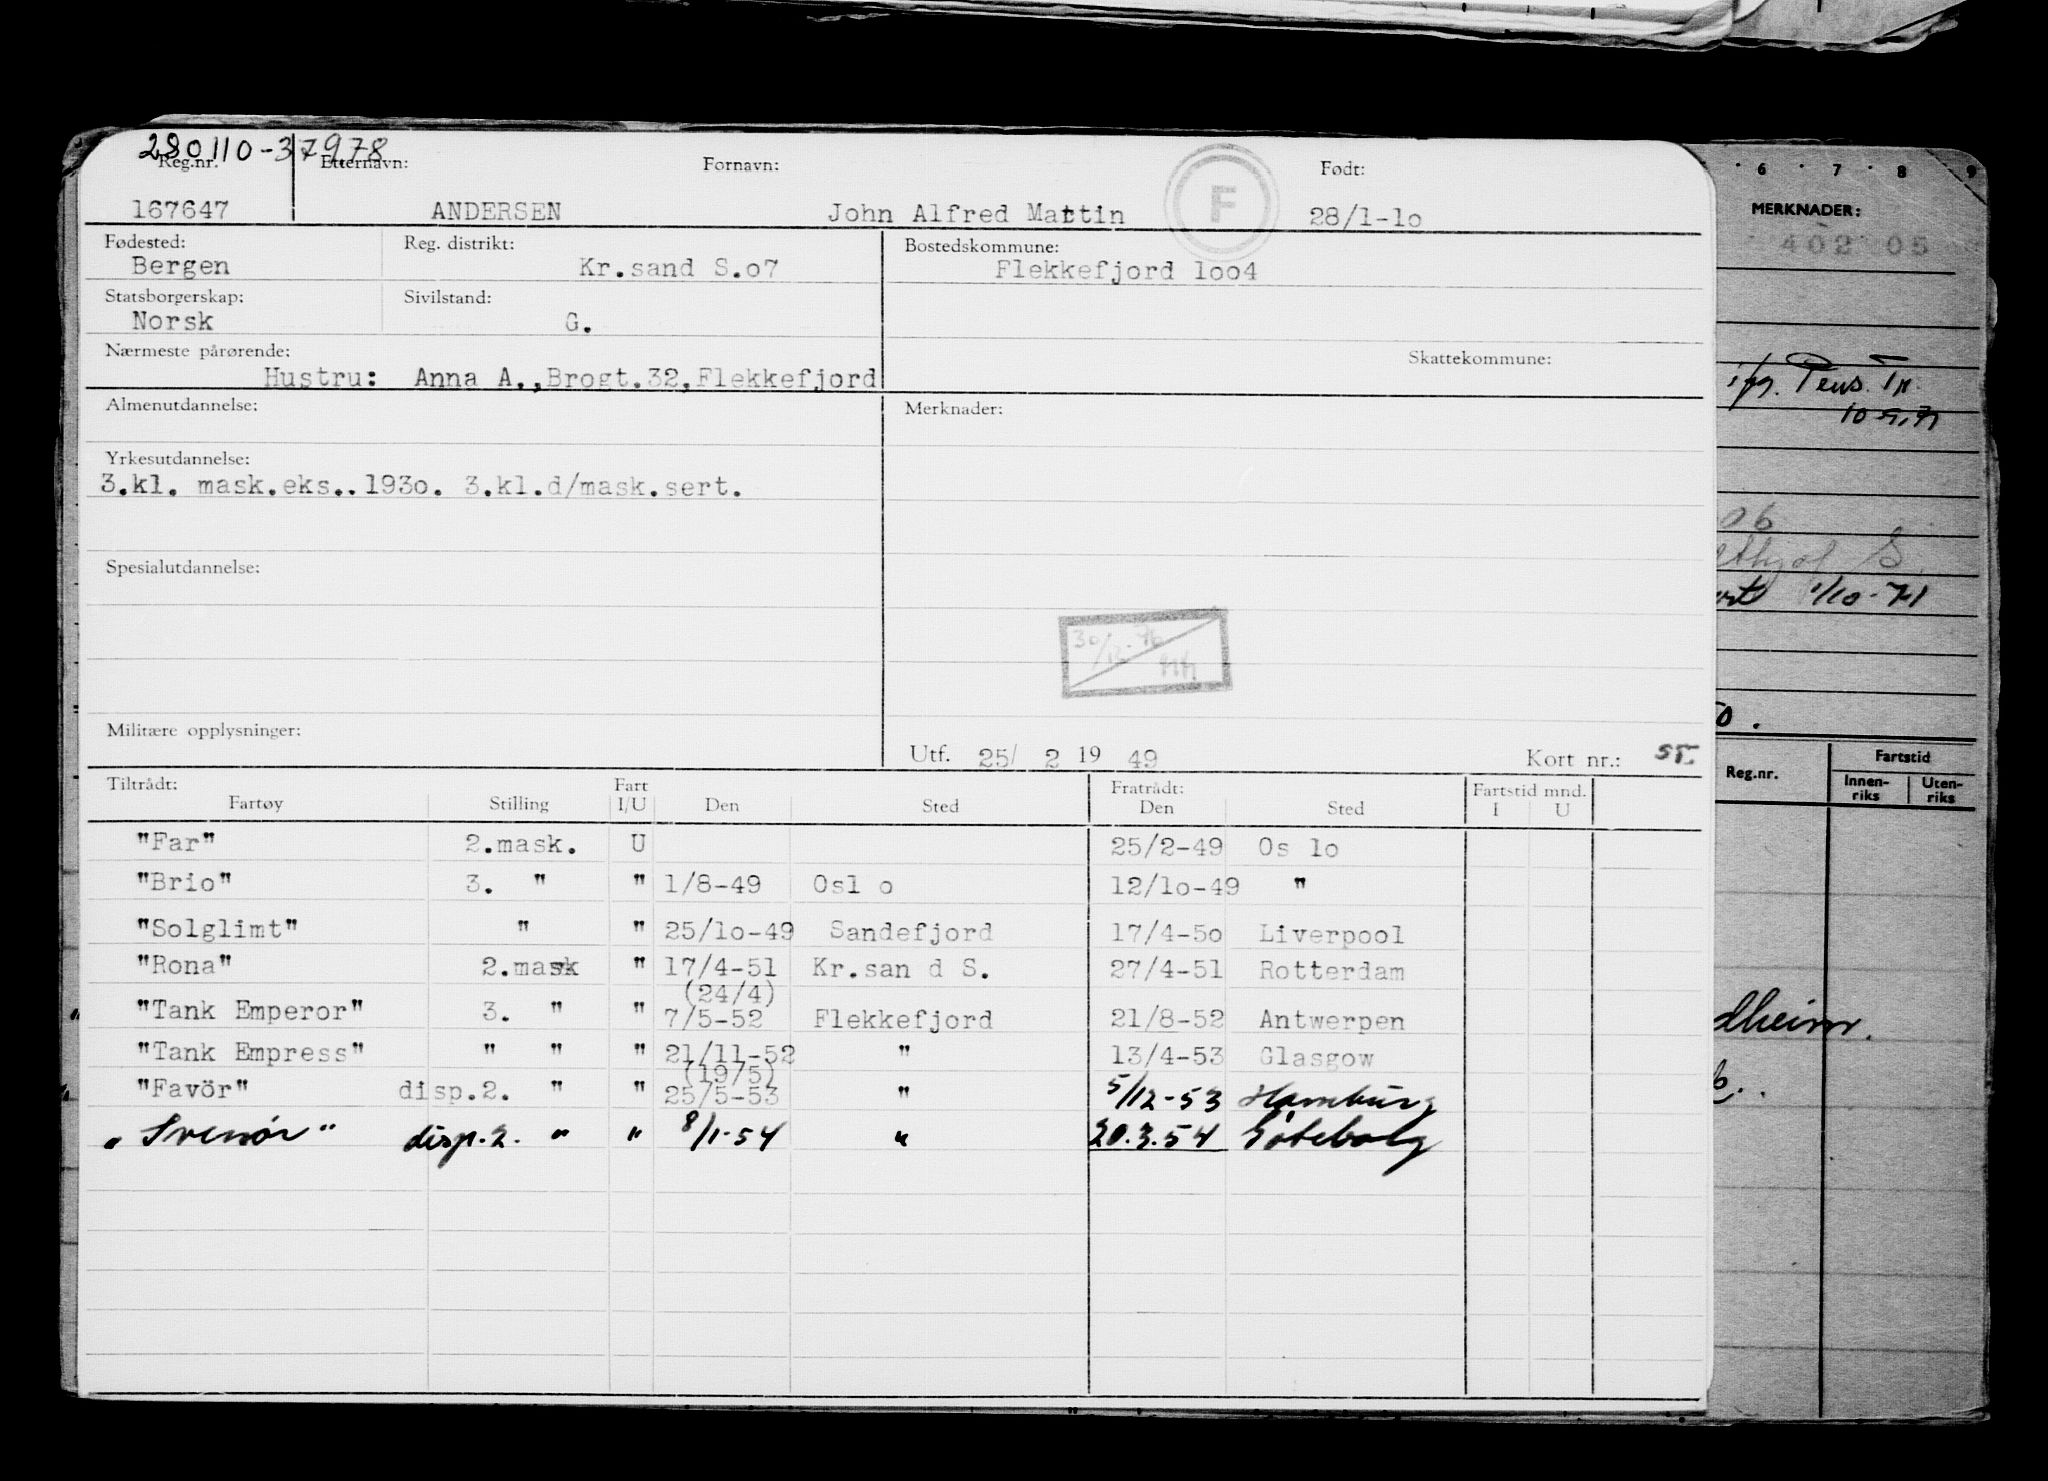 280110-37978
Reg.nr. Etternavn: Fornavn: Født:
167647 ANDERSEN John Alfred Martin F 28/1-1o
Fødested: Reg. distrikt: Bostedskommune:
Bergen Kr.sand S.o7 Flekkefjord 1oo4
Statsborgerskap: Sivilstand:
Norsk G.
Nærmeste pårørende: Skattekommune:
Hustru: Anna A.,Brogt.32,Flekkefjord
Almenutdannelse: Merknader:
Yrkesutdannelse:
3.kl. mask.eks..193o. 3.kl.d/mask.sert.
Spesialutdannelse:
30/12-76
Militære opplysninger:
Utf. 25/ 2 19 49 Kort nr.: 55
Tiltrådt: Fart Fratrådt: Fartstid mnd.
Fartøy Stilling I/U Den Sted Den Sted I U
"Far" 2.mask. U 25/2-49 Os lo
"Brio" 3. " " 1/8-49 Osl o 12/1o-49 "
"Solglimt" " " 25/1o-49 Sandefjord 17/4-5o Liverpool
"Rona" 2.mask " 17/4-51 Kr.san d S. 27/4-51 Rotterdam
(24/4)
"Tank Emperor" 3. " " 7/5-52 Flekkefjord 21/8-52 Antwerpen
"Tank Empress" " " " 21/11-52 " 13/4-53 Glasgow
(19/5)
"Favör" disp.2. " " 25/5-53 " 5/12-53 Hamburg
"Svenör" disp.2. " " 8/1-54 " 20.3.54 Göteborg
6 7 8 9
MERKNADER:
402 05
Pens. Tr.
10.9.71
06
S.
1/10-71
0.
Reg.nr. Fartstid
Innen-riks Uten-riks
dheim.